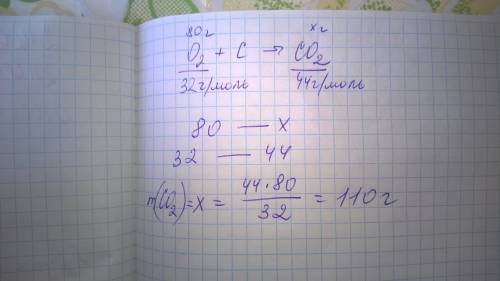 80г xг
O₂ + C → CO₂
32г/моль 44г/моль
80 — x
32 — 44
m(CO₂) = x = 44·80 / 32 = 110г